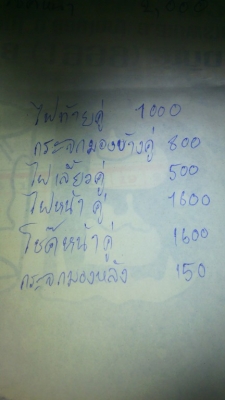 ไฟท้ายคู่ 1000
กระจกมองข้างคู่ 800
ไฟเลี้ยวคู่ 500
ไฟหน้าคู่ 1600
โช๊คหน้าคู่ 1600
กระจกมองหลัง 150